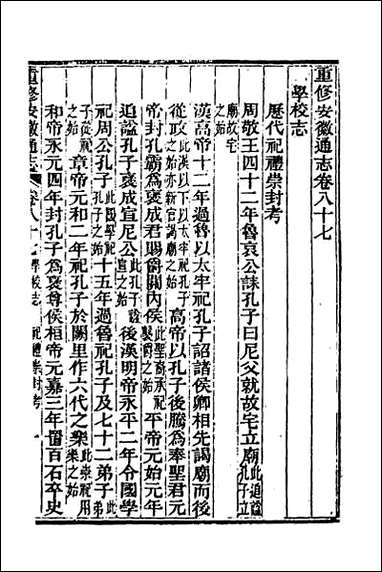 重修安徽通志卷八十七
學校志
歷代祀禮崇封考
周敬王四十二年魯哀公誄孔子曰尼父就故宅立廟此追諡孔子立
廟故宅
之始
漢高帝十二年過魯以太牢祀孔子詔諸侯卿相先謁廟而後
從政此漢以下以太牢祀孔子之始亦新官謁廟之始 高帝以孔子後騰為奉聖君元
帝封孔霸為褒成君賜爵關內侯此聖裔承祀襲爵之始 平帝元始元年
追諡孔子褒成宣尼公此孔子諡宣之始 後漢明帝永平二年令國學
祀周公孔子此國學祀孔子之始 十五年過魯祀孔子及七十二弟子此
子從祀之始 章帝元和二年祀孔子於闕里作六代之樂此崇祀用樂之始
和帝永元四年封孔子為褒尊侯桓帝元嘉三年置百石卒史
重修安徽通志 卷八十七 學校志 祀禮崇封考 一